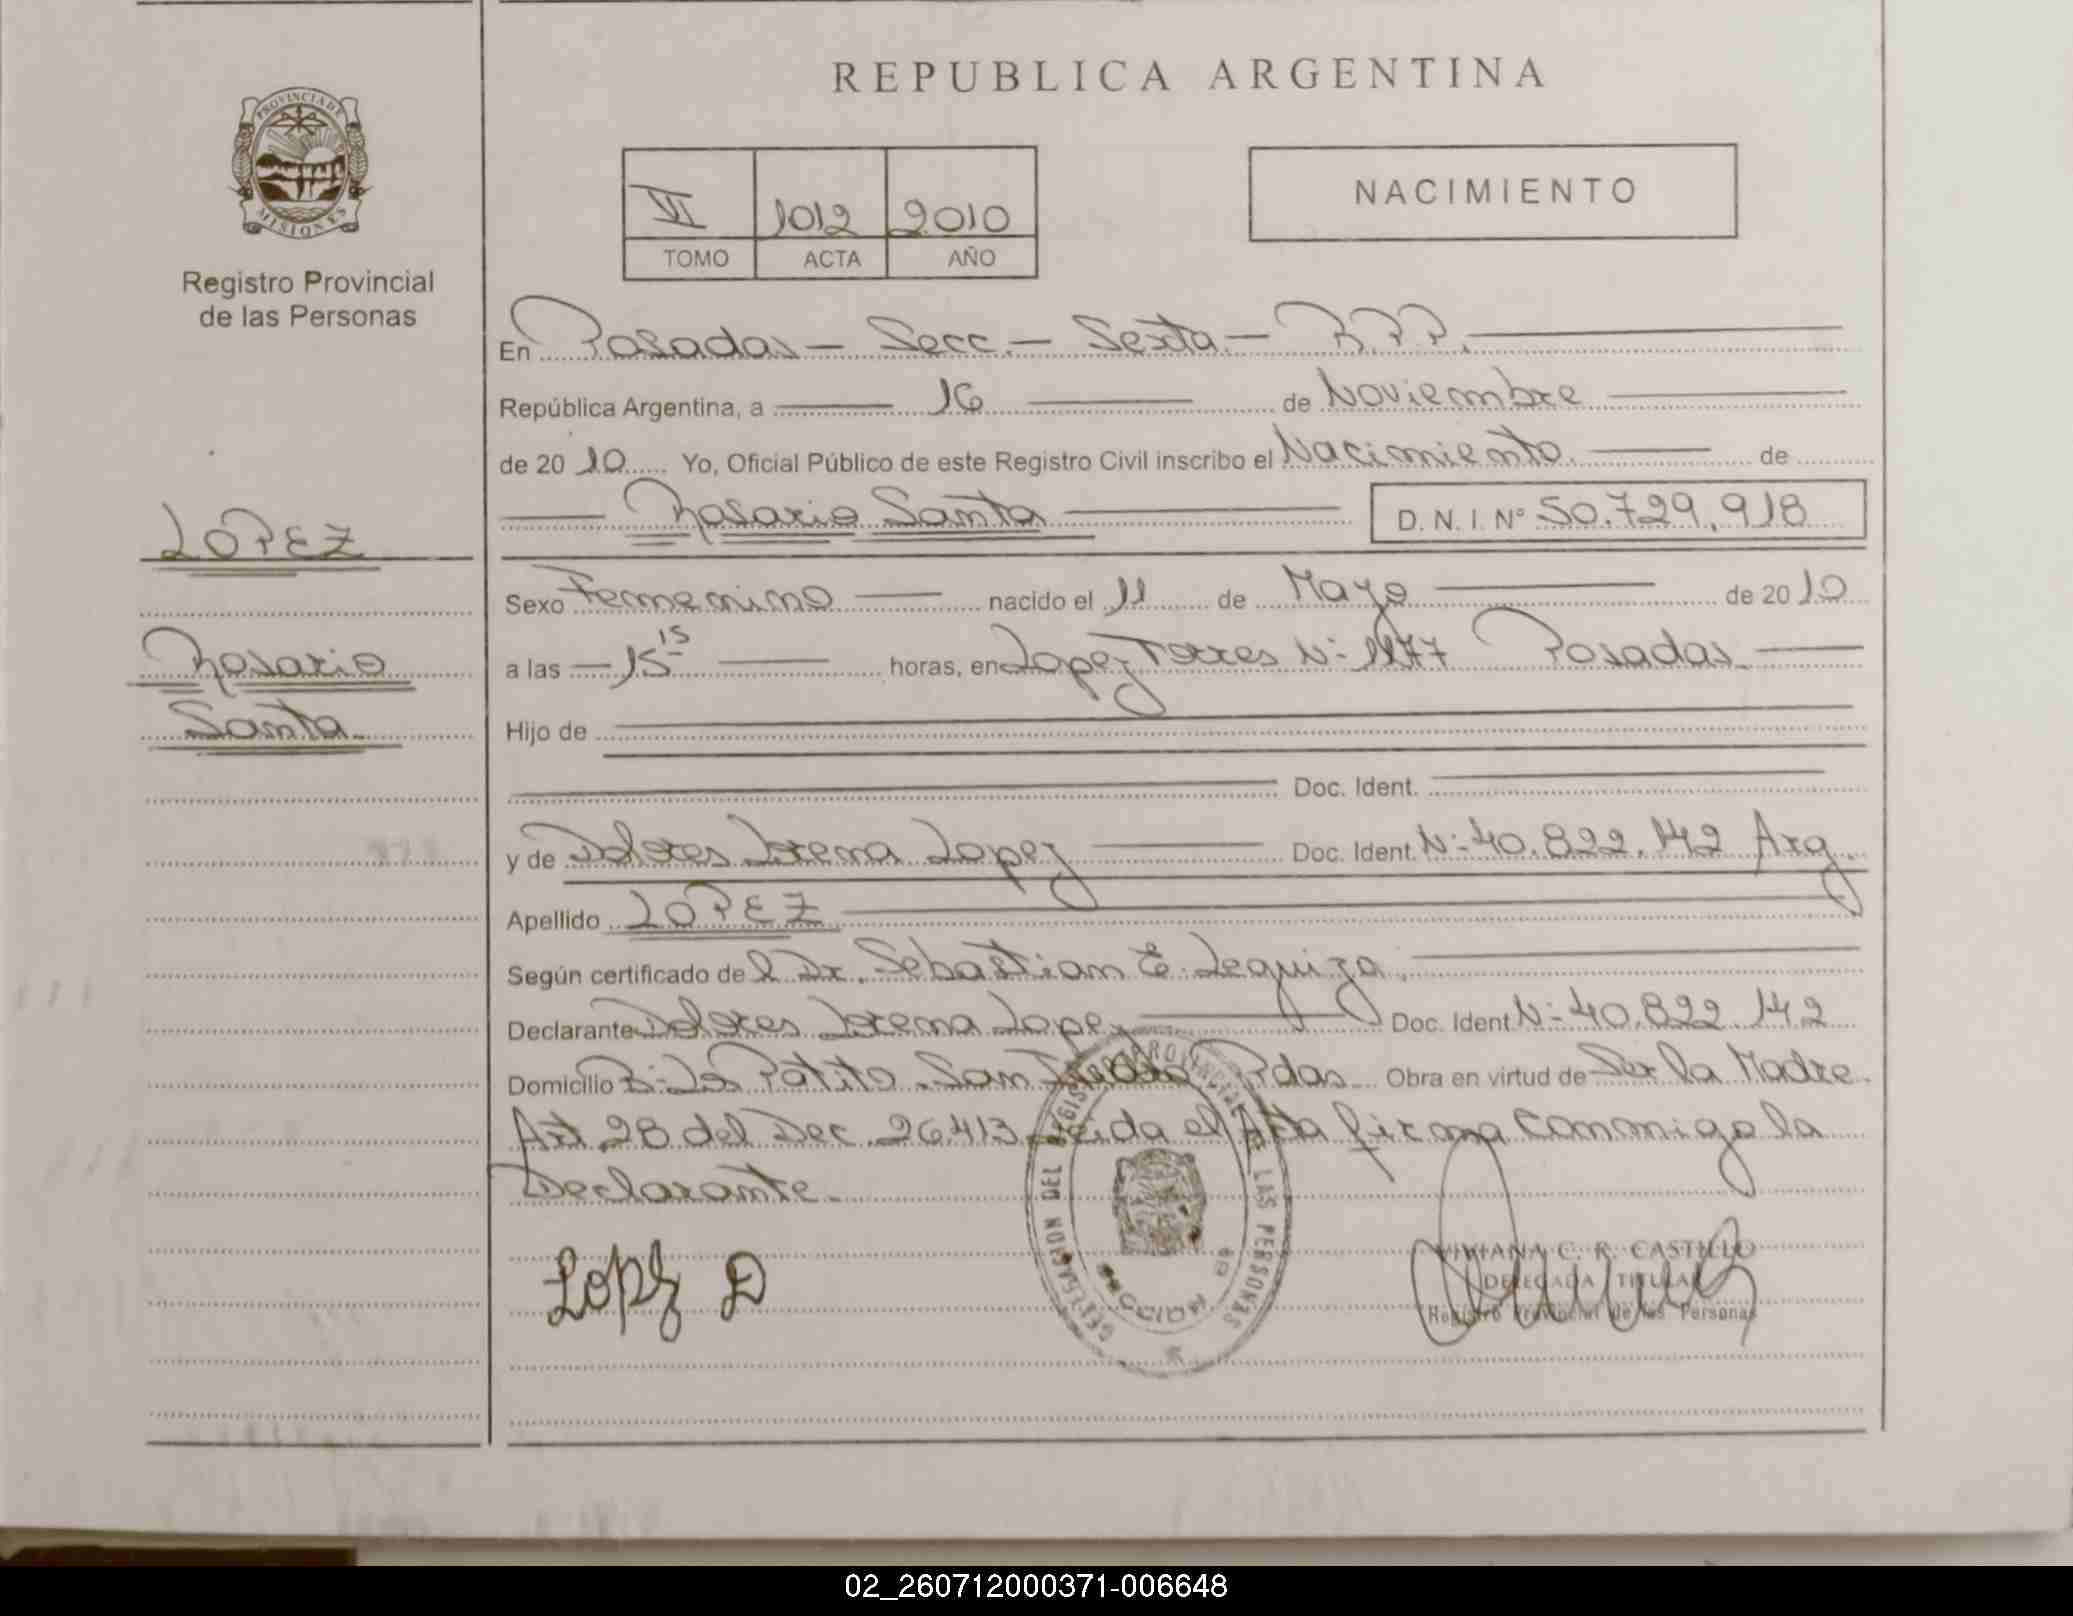 REPUBLICA ARGENTINA
PROVINCIA DE
MISIONES
Registro Provincial
de las Personas
VI 1012 2010
TOMO ACTA AÑO
NACIMIENTO
En Posadas - Secc. - Sexta - R.P.P.
República Argentina, a 16 de Noviembre
de 2010 Yo, Oficial Público de este Registro Civil inscribo el Nacimiento. de
Rosario Santa D. N. I. Nº 50.729.918
LOPEZ
Rosario
Santa
Sexo Femenino nacido el 11 de Mayo de 2010
a las 15 15 horas, en Lopez Torres Nº 1177 Posadas
Hijo de
Doc. Ident.
y de Dolores Lorena Lopez Doc. Ident. Nº 40.822.142 Arg.
Apellido LOPEZ
Según certificado del Dr. Sebastian E. Leguiza.
Declarante Dolores Lorena Lopez Doc. Ident Nº 40.822.142
Domicilio Bº Patito San Pdas Obra en virtud de Ser la Madre
Art. 28 del Dec 26413 Leida el Acta firma conmigo la
Declarante.
Lopez D
DELEGACION DEL REGISTRO PROVINCIAL DE LAS PERSONAS
SECCION
VIVIANA C. R. CASTILLO
DELEGADA TITULAR
Registro Provincial de las Personas
02_260712000371-006648